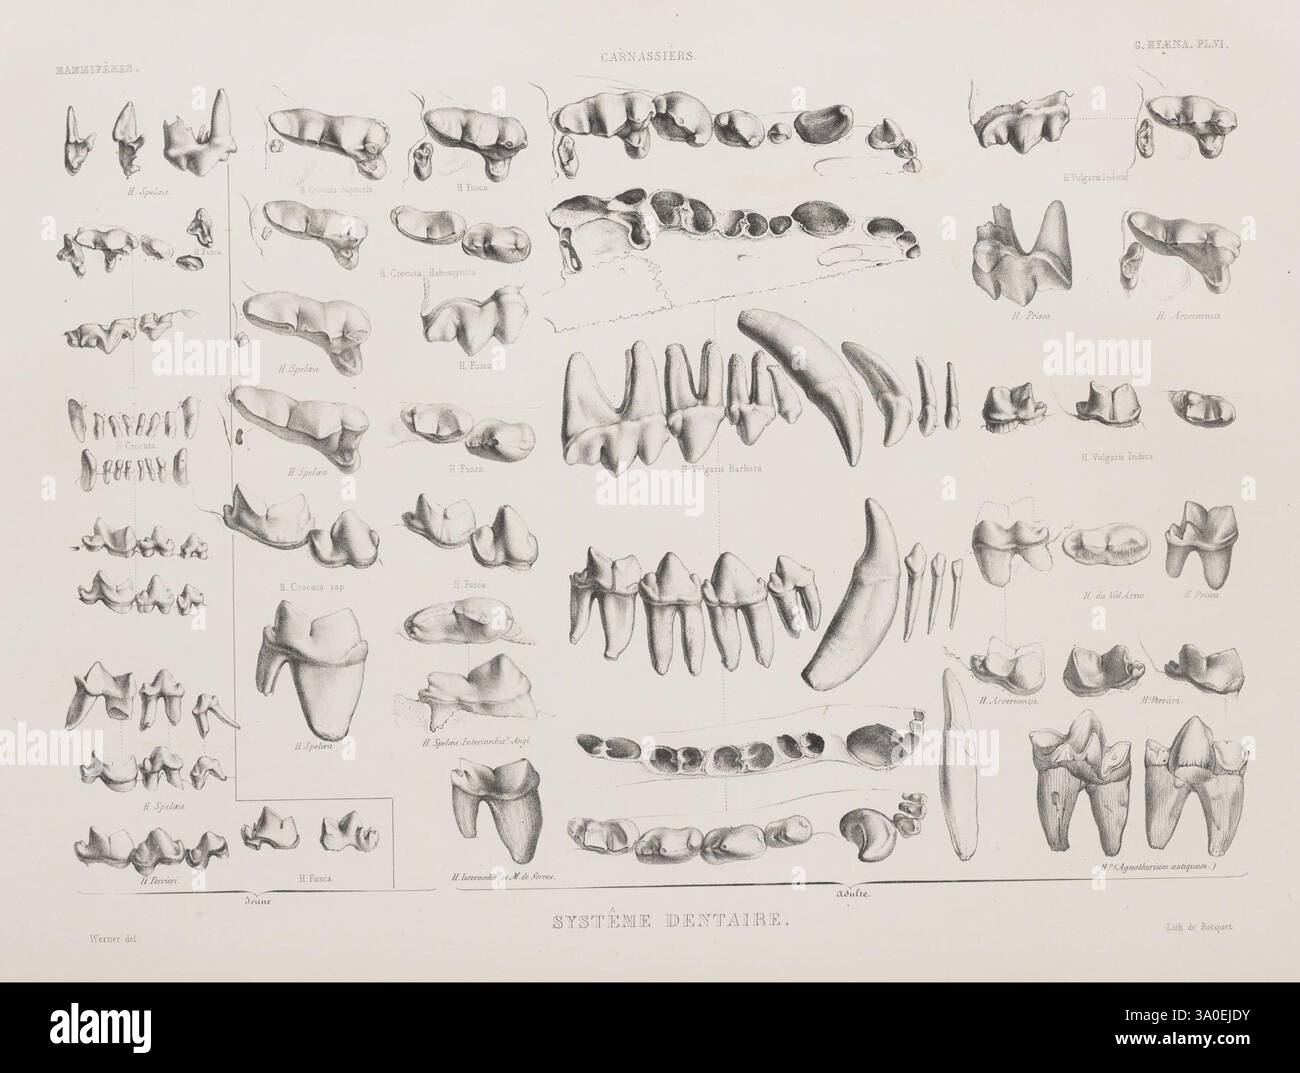 MAMMIFÈRES.
CARNASSIERS.
G. HYÆNA. PL.VI.
H. Spelæa.
H. Crocuta capensis.
H. Fusca.
H. Vulgaris Indica.
H. Fusca.
H. Crocuta Habessynica
H. Prisca.
H. Arvernensis
H. Spelæa.
H. Fusca
H. Crocuta.
H. Spelæa.
H. Fusca.
H. Vulgaris Barbara
H. Vulgaris Indica.
H. Crocuta cap.
H. Fusca.
H. du Val Arno.
H. Prisca.
H. Spelæa.
H. Spelæa Intermediaᵗᵉ Angl.
H. Arvernensis.
Hᵃ Perrieri.
H. Spelæa.
H. Perrieri.
H. Fusca.
H. Intermediᵃ M. de Serres.
Hᵃ? (Agnotherium antiquum.)
Jeune.
Adulte.
SYSTÊME DENTAIRE.
Werner del.
Lith. de Becquet.
alamy
alamy
Image ID: 3A0EJDY
www.alamy.com